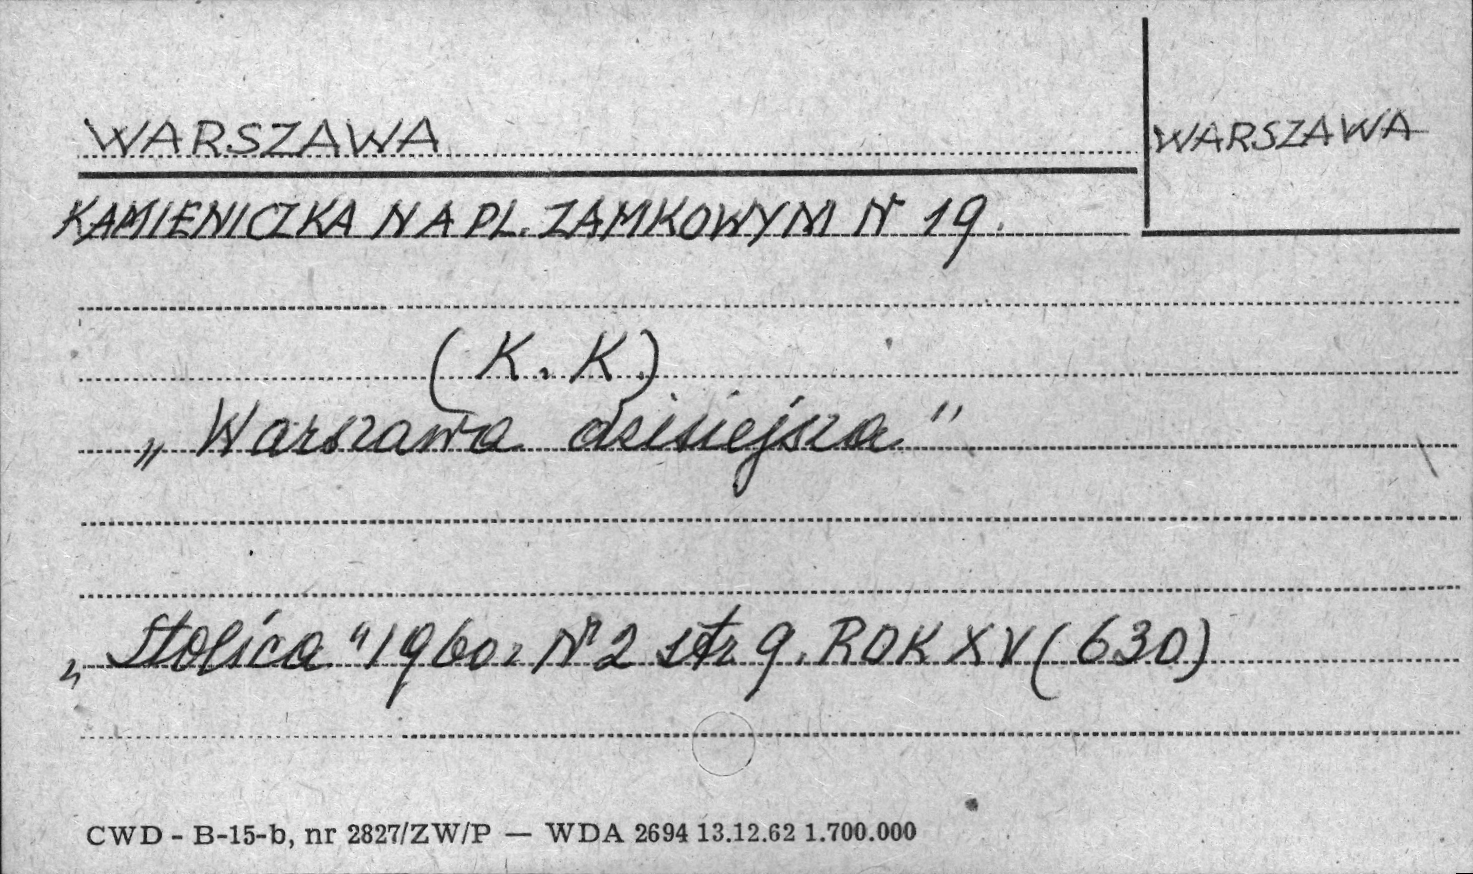 WARSZAWA
WARSZAWA
KAMIENICZKA NA PL. ZAMKOWYM Nr 19.
(K. K.)
„Warszawa dzisiejsza"
„Stolica" 1960r. Nr 2 str. 9. ROK XV (630)
CWD - B-15-b, nr 2827/ZW/P — WDA 2694 13.12.62 1.700.000